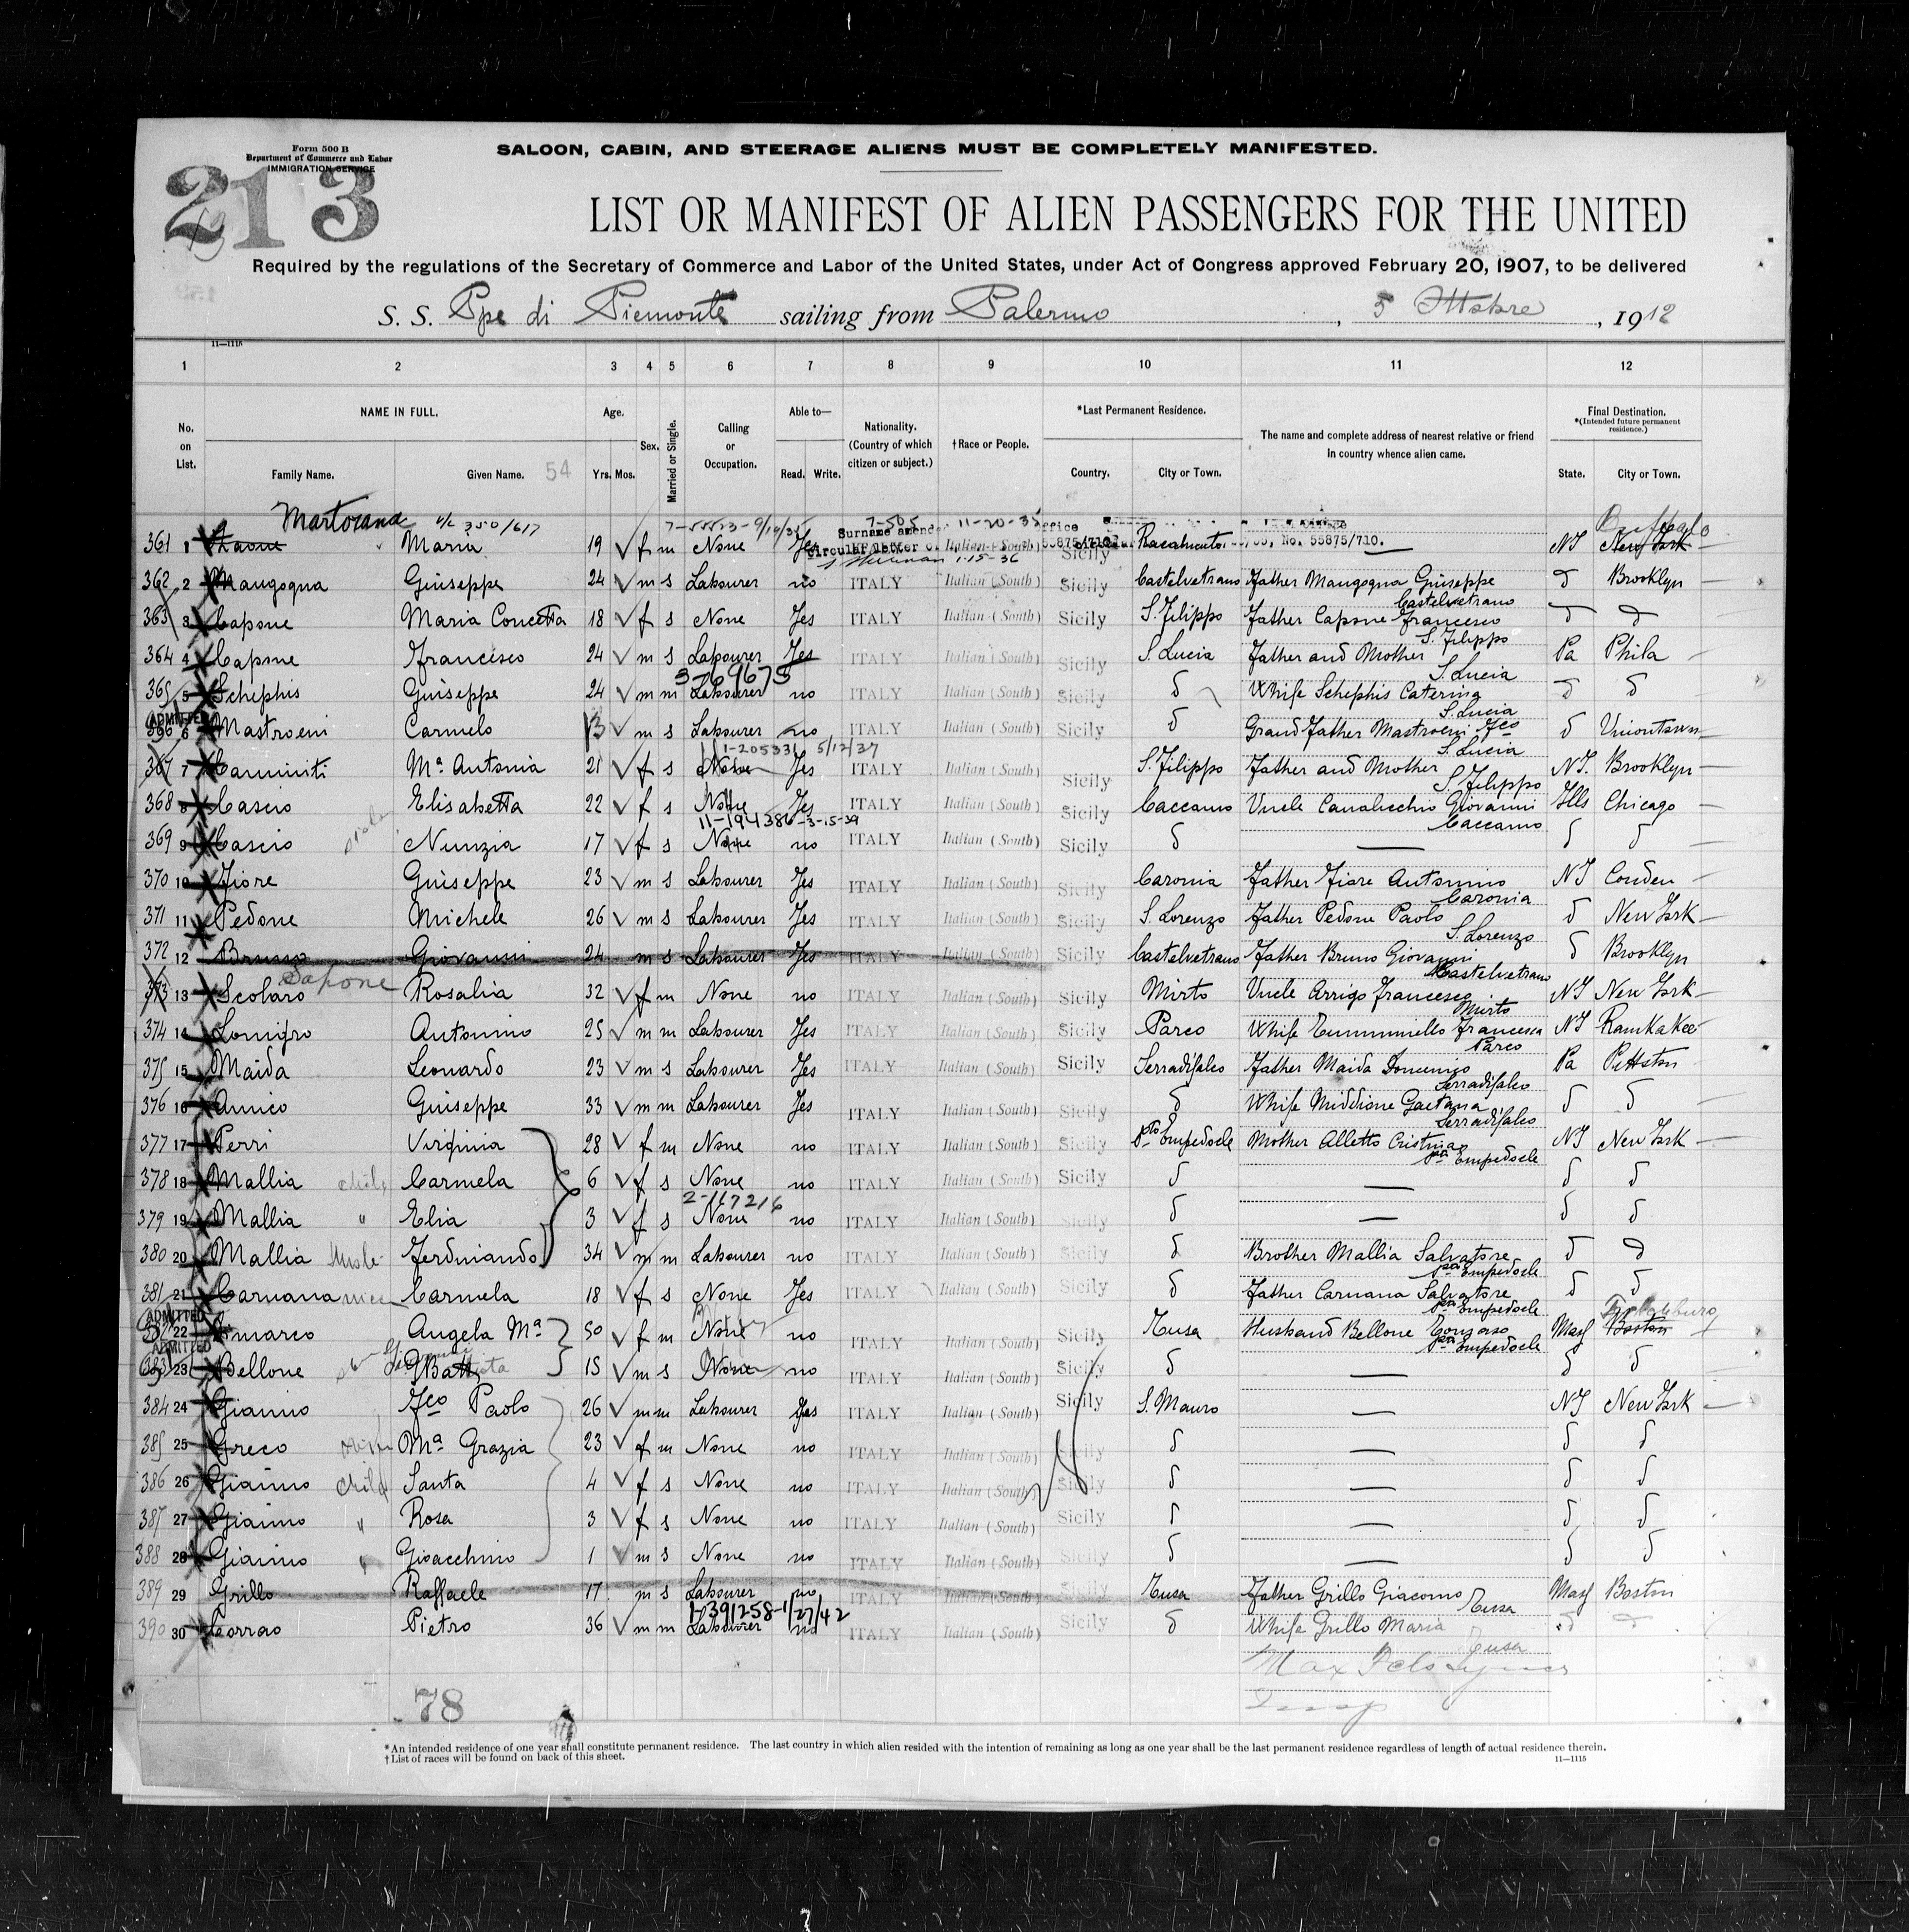 Form 500 B
Department of Commerce and Labor
IMMIGRATION SERVICE
213
SALOON, CABIN, AND STEERAGE ALIENS MUST BE COMPLETELY MANIFESTED.
LIST OR MANIFEST OF ALIEN PASSENGERS FOR THE UNITED
Required by the regulations of the Secretary of Commerce and Labor of the United States, under Act of Congress approved February 20, 1907, to be delivered
S. S. Ppe di Piemonte sailing from Palermo, 5 Ottobre, 1912
11—1115
1 2 3 4 5 6 7 8 9 10 11 12
No. on List. NAME IN FULL. Family Name. Given Name. 54 Age. Yrs. Mos. Sex. Married or Single. Calling or Occupation. Able to— Read. Write. Nationality. (Country of which citizen or subject.) †Race or People. *Last Permanent Residence. Country. City or Town. The name and complete address of nearest relative or friend in country whence alien came. Final Destination. *(Intended future permanent residence.) State. City or Town.
Martorana 350/617 7-505 11-20-35 Buffalo
361 1 Maria 19 f m None Yes Italian (South) Sicily Racalmuto — NY New York
Surname amended 55875/710.
1-15-36
362 2 Mangogna Giuseppe 24 m s Labourer no ITALY Italian (South) Sicily Castelvetrano Father Mangogna Giuseppe Castelvetrano d Brooklyn
363 3 Capone Maria Concetta 18 f s None Yes ITALY Italian (South) Sicily S. Filippo Father Capone Francesco S. Filippo d d
364 4 Capone Francesco 24 m s Labourer Yes ITALY Italian (South) Sicily S. Lucia Father and Mother S. Lucia Pa Phila
365 5 Schephis Giuseppe 24 m m Labourer no ITALY Italian (South) Sicily d Whife Schephis Caterina S. Lucia d d
ADMITTED
366 6 Mastroeni Carmelo 13 m s Labourer no ITALY Italian (South) Sicily d Grand Father Mastroeni Fco S. Lucia d Uniontown
1-205331 5/12/37
367 7 Caminiti Ma Antonia 21 f s None Yes ITALY Italian (South) Sicily S. Filippo Father and Mother S. Filippo NY. Brooklyn
368 8 Cascio Elisabetta 22 f s None Yes ITALY Italian (South) Sicily Caccamo Uncle Canalicchio Giovanni Caccamo Ills Chicago
11-194386-3-15-39
369 9 Cascio Nunzia 17 f s None no ITALY Italian (South) Sicily d — d d
370 10 Fiore Giuseppe 23 m s Labourer Yes ITALY Italian (South) Sicily Caronia Father Fiore Antonino Caronia NJ Conden
371 11 Pedone Michele 26 m s Labourer Yes ITALY Italian (South) Sicily S. Lorenzo Father Pedone Paolo S. Lorenzo d New York
372 12 Bruno Giovanni 24 m s Labourer Yes ITALY Italian (South) Sicily Castelvetrano Father Bruno Giovanni Castelvetrano d Brooklyn
Sapone
373 13 Scolaro Rosalia 32 f m None no ITALY Italian (South) Sicily Mirto Uncle Arrigo Francesco Mirto NY New York
374 14 Lonigro Antonino 25 m m Labourer Yes ITALY Italian (South) Sicily Parco Whife Francesca Parco NY Kamkakee
375 15 Maida Leonardo 23 m s Labourer Yes ITALY Italian (South) Sicily Serradifalco Father Maida Domenico Serradifalco Pa Pittston
376 16 Amico Giuseppe 33 m m Labourer Yes ITALY Italian (South) Sicily d Whife Middione Gaetana Serradifalco d d
377 17 Perri Virginia 28 f m None no ITALY Italian (South) Sicily Pto Empedocle Mother Alletto Cristina Pto Empedocle NY New York
378 18 Mallia child Carmela 6 f s None no ITALY Italian (South) Sicily d — d d
2-167216
379 19 Mallia " Elia 3 f s None no ITALY Italian (South) Sicily d — d d
380 20 Mallia Ferdinando 34 m m Labourer no ITALY Italian (South) Sicily d Brother Mallia Salvatore Pto Empedocle d d
381 21 Caruana niece Carmela 18 f s None Yes ITALY Italian (South) Sicily d Father Caruana Salvatore Pto Empedocle d d
ADMITTED
22 Angela Ma 50 f m None no ITALY Italian (South) Sicily Tusa Husband Bellone Pto Empedocle Mass Boston
ADMITTED
383 23 Bellone GBatt 15 m s None no ITALY Italian (South) Sicily d — d d
384 24 Gianno Fco Paolo 26 m m Labourer Yes ITALY Italian (South) Sicily S. Mauro — NY New York
385 25 Greco Ma Grazia 23 f m None no ITALY Italian (South) Sicily d — d d
386 26 Gianno child Santa 4 f s None no ITALY Italian (South) Sicily d — d d
387 27 Gianno " Rosa 3 f s None no ITALY Italian (South) Sicily d — d d
388 28 Gianno " Gioacchino 1 m s None no ITALY Italian (South) Sicily d — d d
389 29 Grillo Raffaele 17 m s Labourer no ITALY Italian (South) Sicily Tusa Father Grillo Giacomo Tusa Mass Boston
1-391258-1/27/42
390 30 Corrao Pietro 36 m m Labourer no ITALY Italian (South) Sicily d Whife Grillo Maria Tusa d d
Max
78
*An intended residence of one year shall constitute permanent residence. The last country in which alien resided with the intention of remaining as long as one year shall be the last permanent residence regardless of length of actual residence therein.
†List of races will be found on back of this sheet.
11—1115